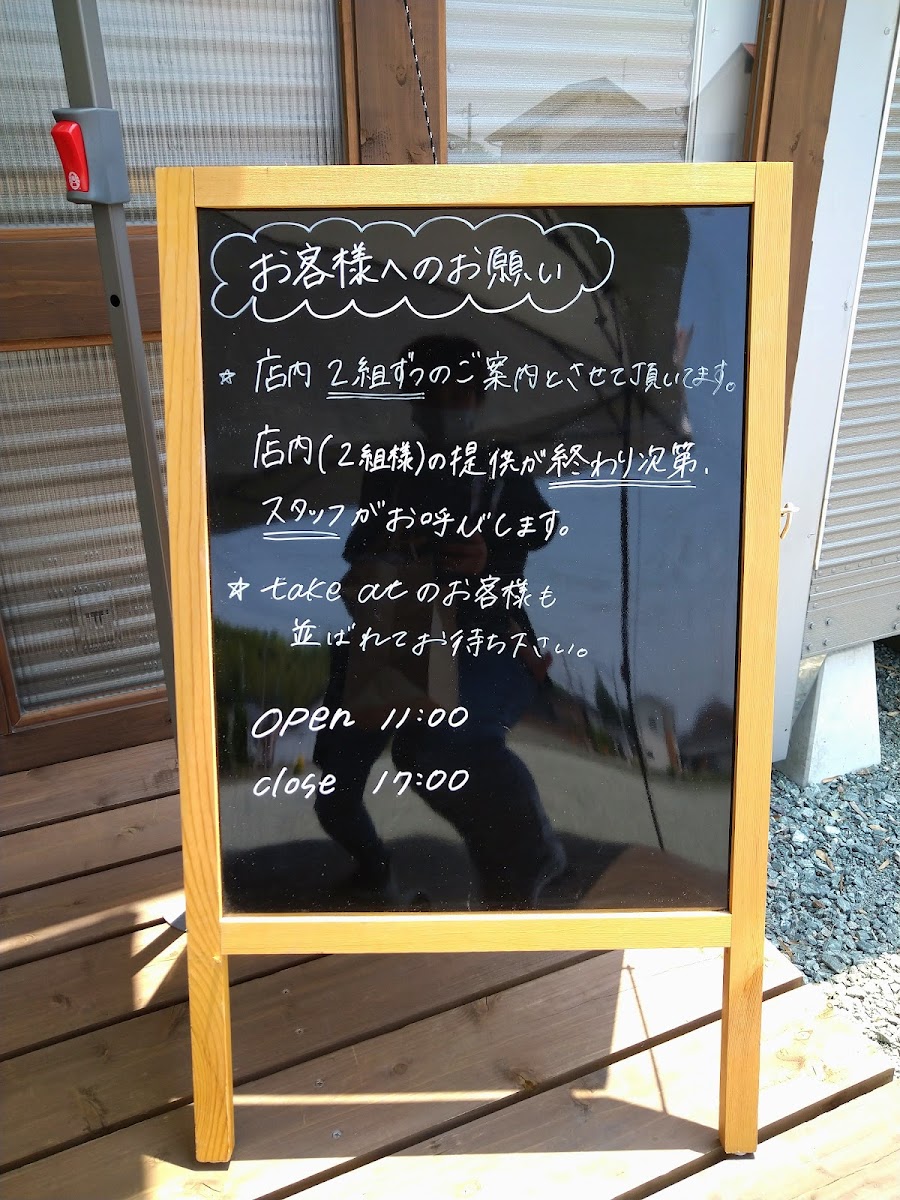 お客様へのお願い
☆ 店内 2組ずつのご案内とさせて頂いてます。
店内(2組様)の提供が終わり次第、
スタッフがお呼びします。
☆ take outのお客様も
並ばれてお待ち下さい。
open 11:00
close 17:00